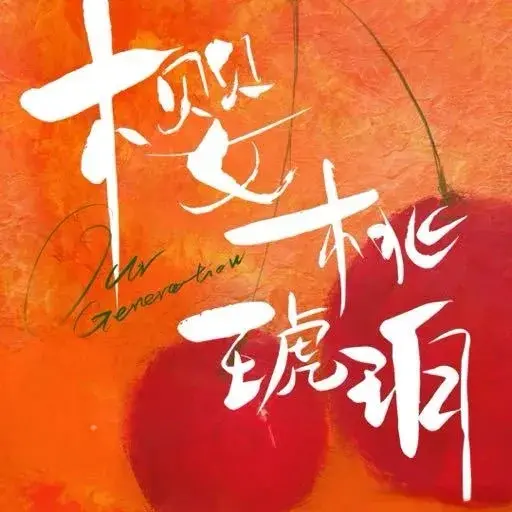 樱桃
琥珀
Our
Generation